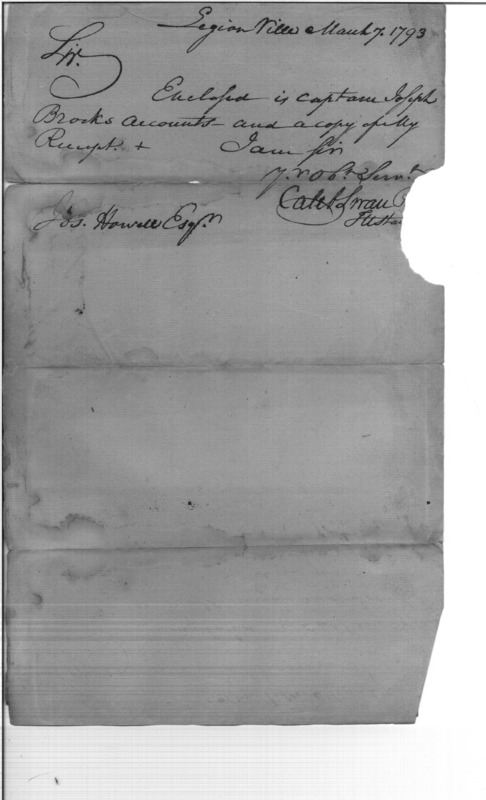 Legion Ville March 7. 1793
Sir.
Enclosed is captain Joseph
Brocks accounts and a copy of My
Receipt. + I am Sir
Y. m ob.t Serv.t
Caleb Swan P
Jos. Howell Esq.r